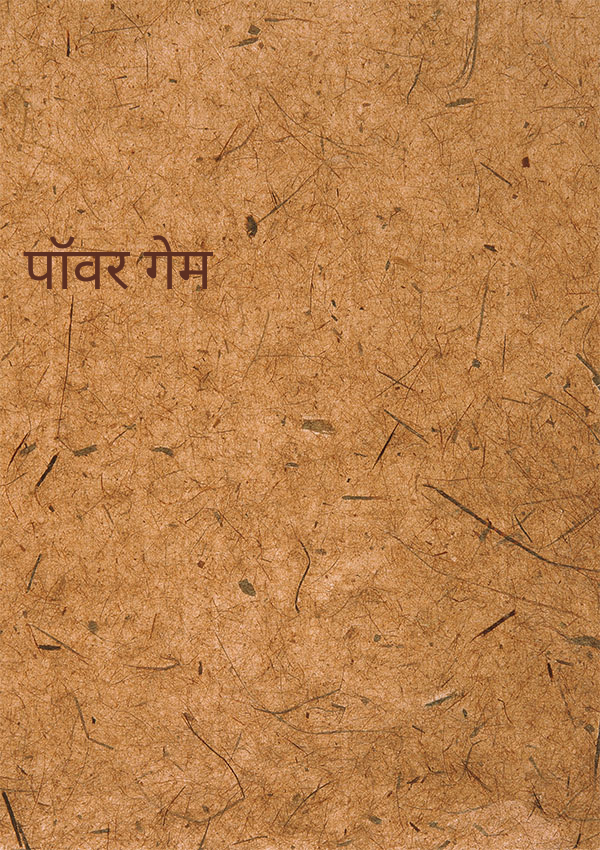 पॉवर गेम